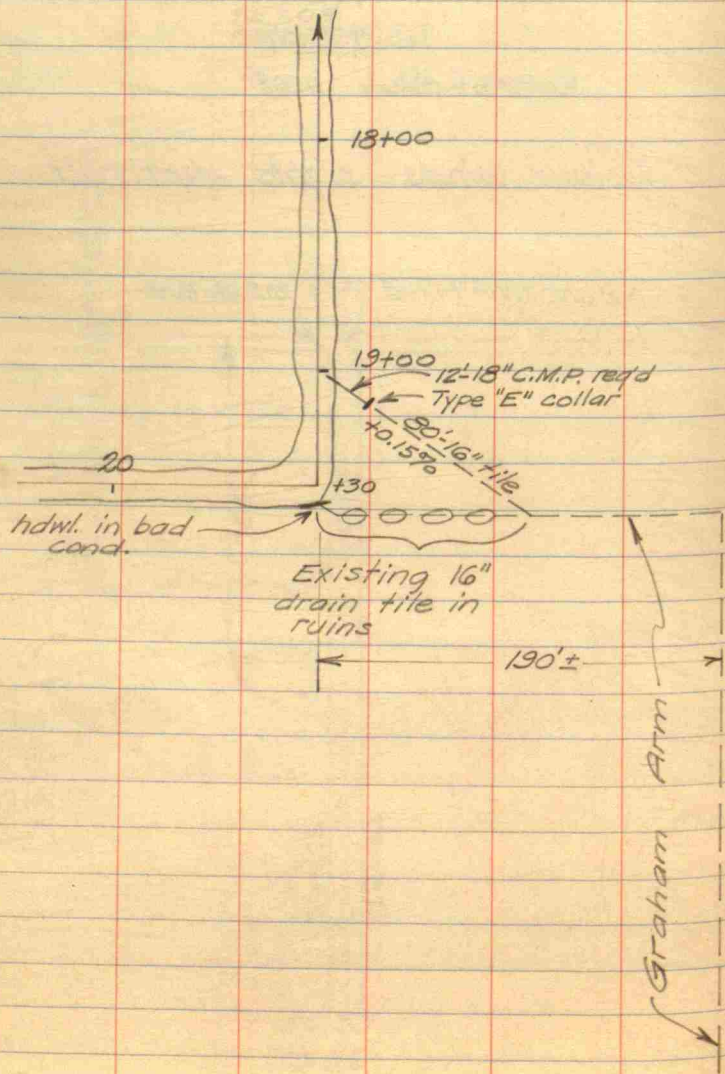 18+00
19+00
12'-18" C.M.P. req'd
Type "E" collar
80'-16" tile
+0.15%
20
+30
hdwl. in bad
cond.
Existing 16"
drain tile in
ruins
190'±
Graham Arm